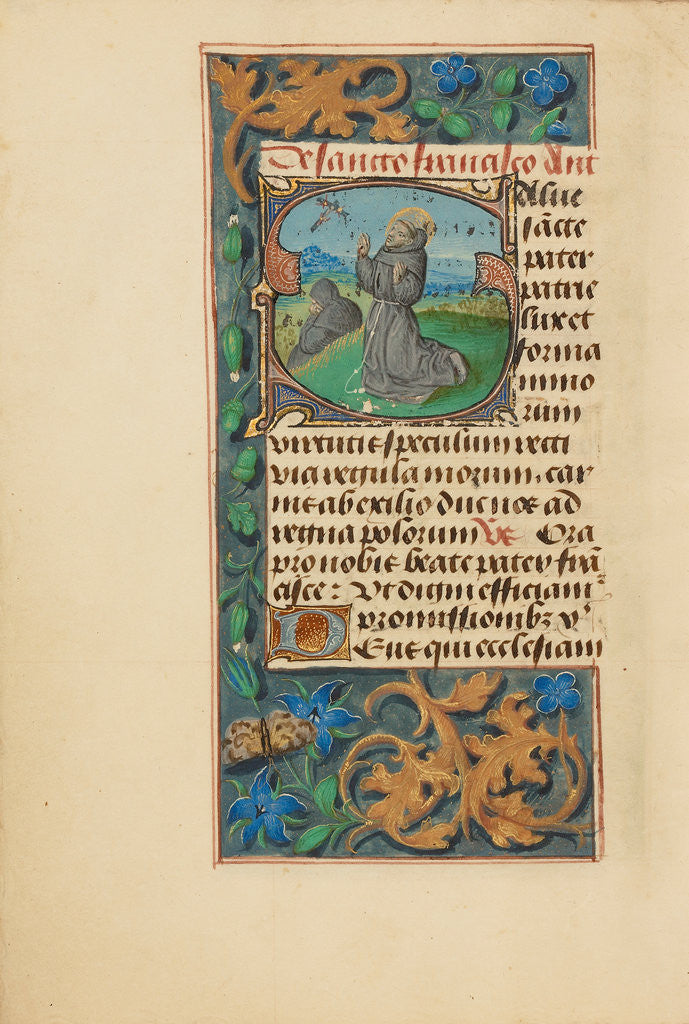 De sancto francisco Ant
Salue
sācte
pater
patrie
lux et
forma
mino
rum
virtutis speculum recti
via regula morum. car
nis ab exilio duc nos ad
regna polorum Vs Ora
pro nobis beate pater frā
cisce: Vt digni efficiam'
promissionibz x'
DEus qui ecclesiam